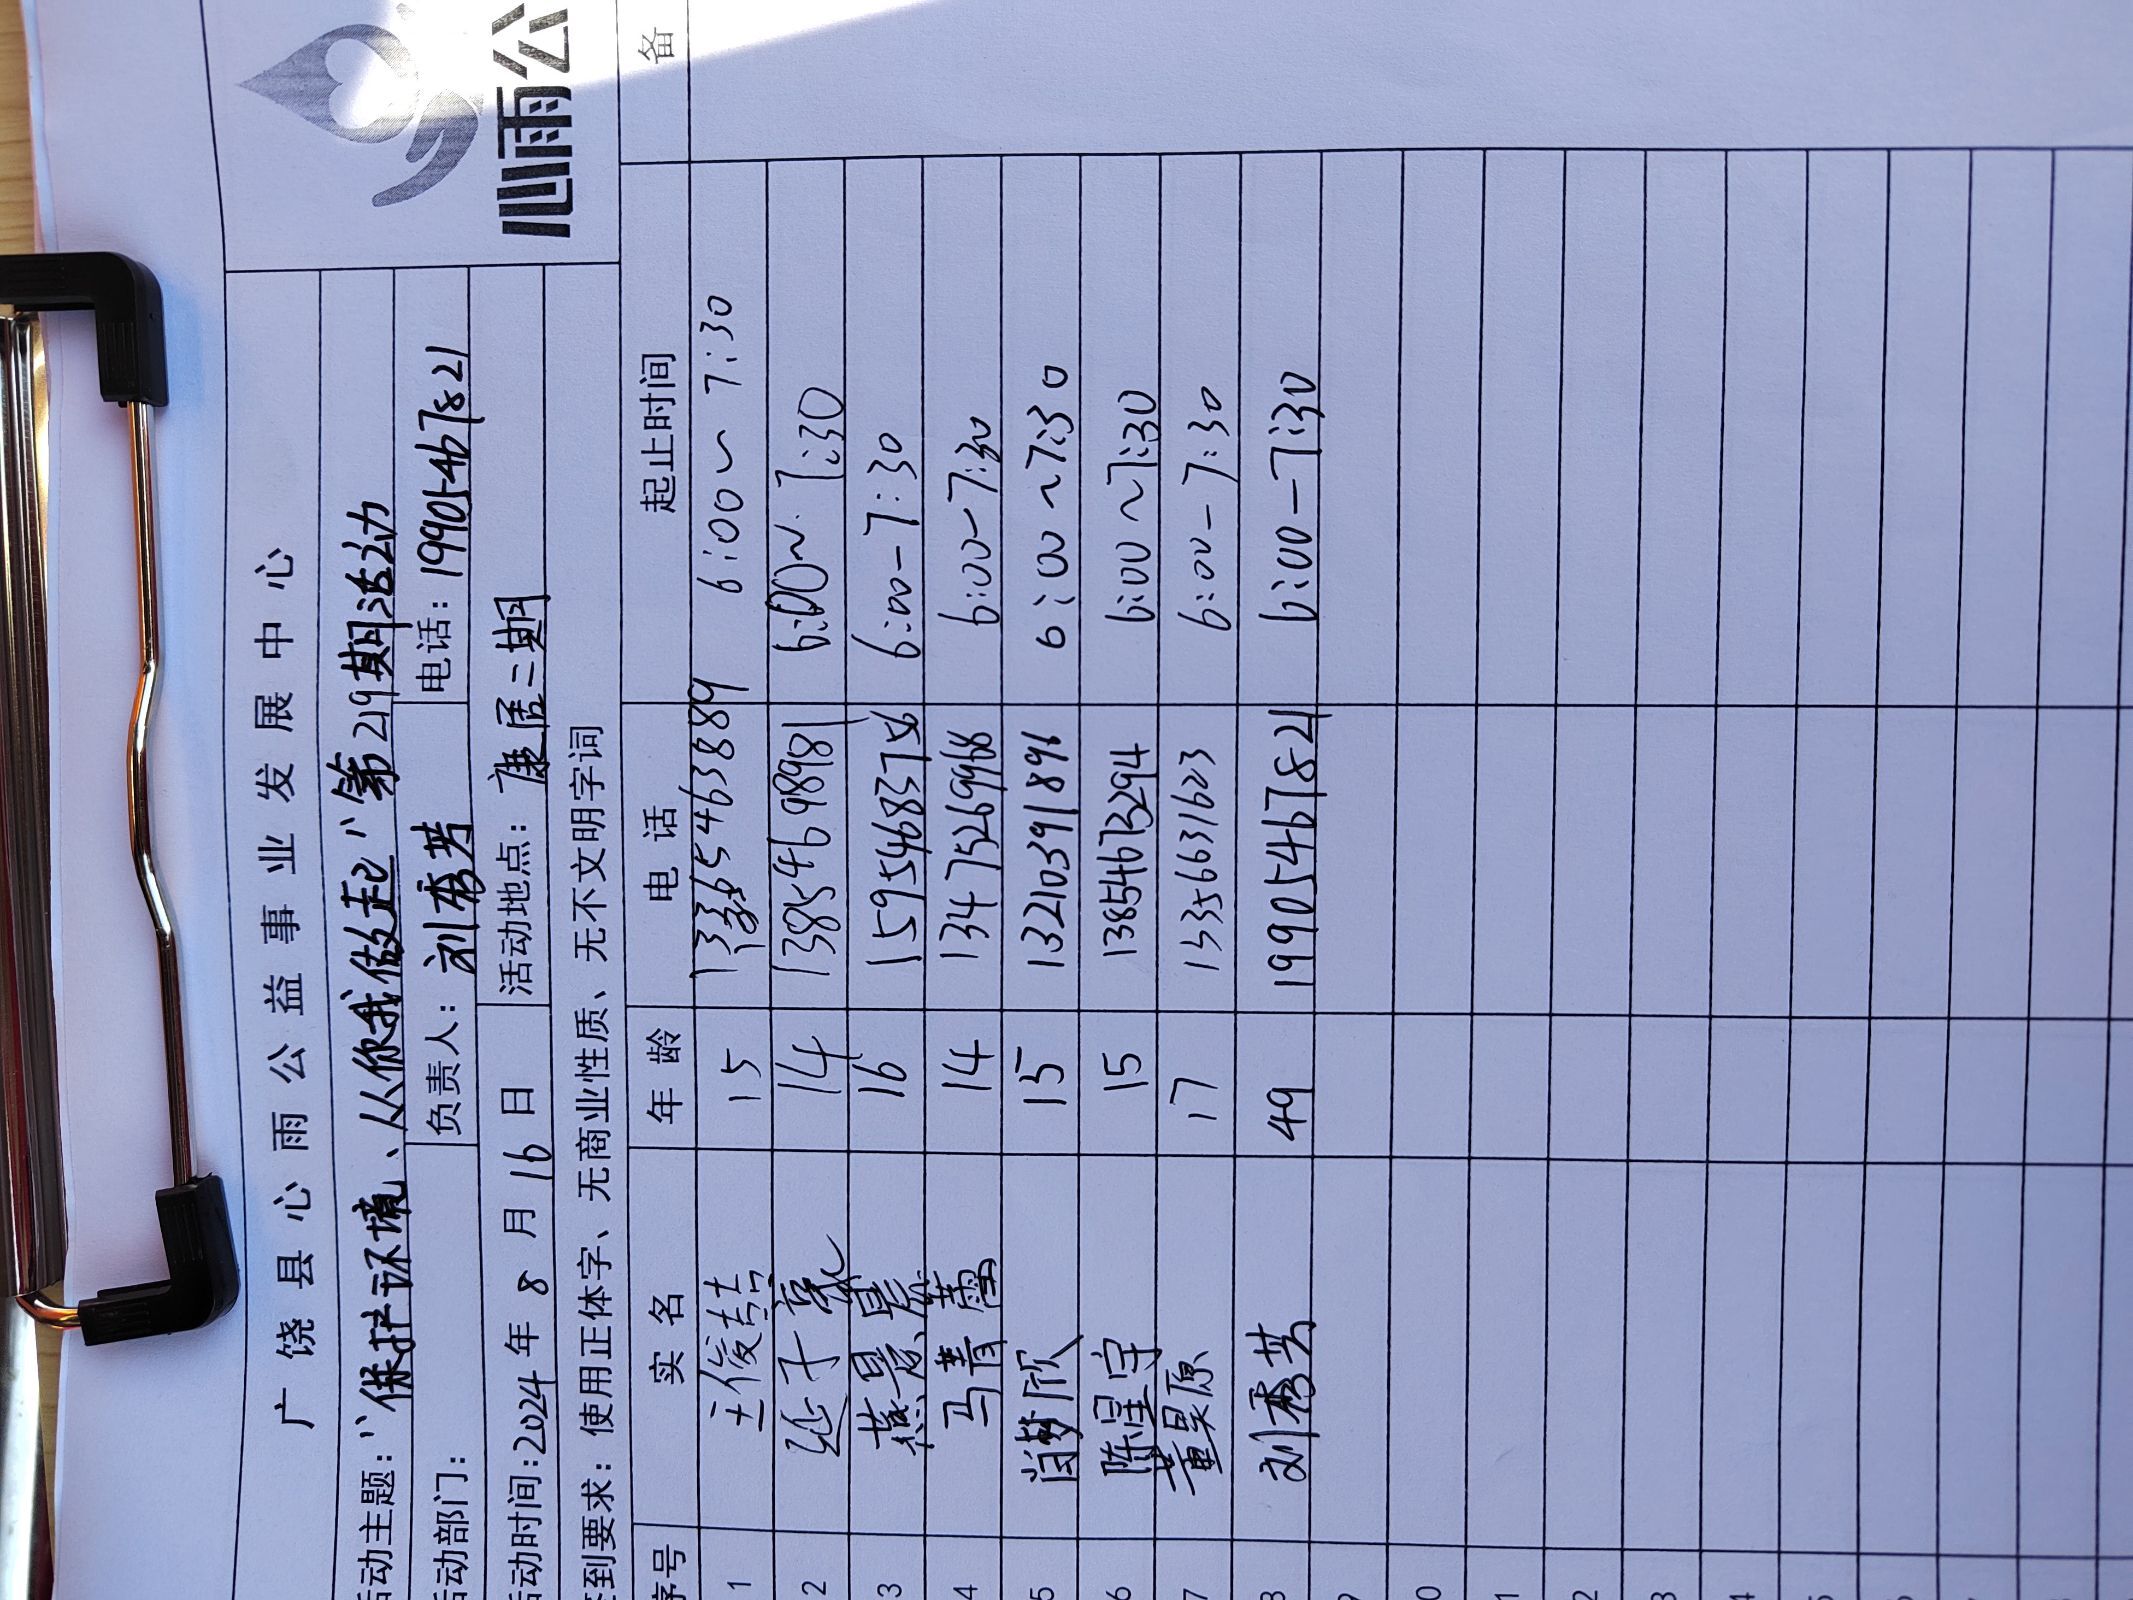 广饶县心雨公益事业发展中心
心雨公
活动主题：“保护环境、从你我做起”第219期活动
活动部门： 负责人：刘秀芳 电话：19905467821
活动时间：2024年8月16日 活动地点：康居二期
签到要求：使用正体字、无商业性质、无不文明字词
序号 实名 年龄 电话 起止时间 备
1 王俊喆 15 6:00~7:30
2 14 13854698981 6:00~7:30
3 燕景晨 16 6:00-7:30
4 马菁蔓 14 13475269968 6:00-7:30
5 闫梦欣 15 13210391896 6:00~7:30
6 陈星宇 15 13854673294 6:00~7:30
7 董昊原 17 13356631623 6:00-7:30
8 刘秀芳 49 19905467821 6:00-7:30
9
0
1
2
3
4